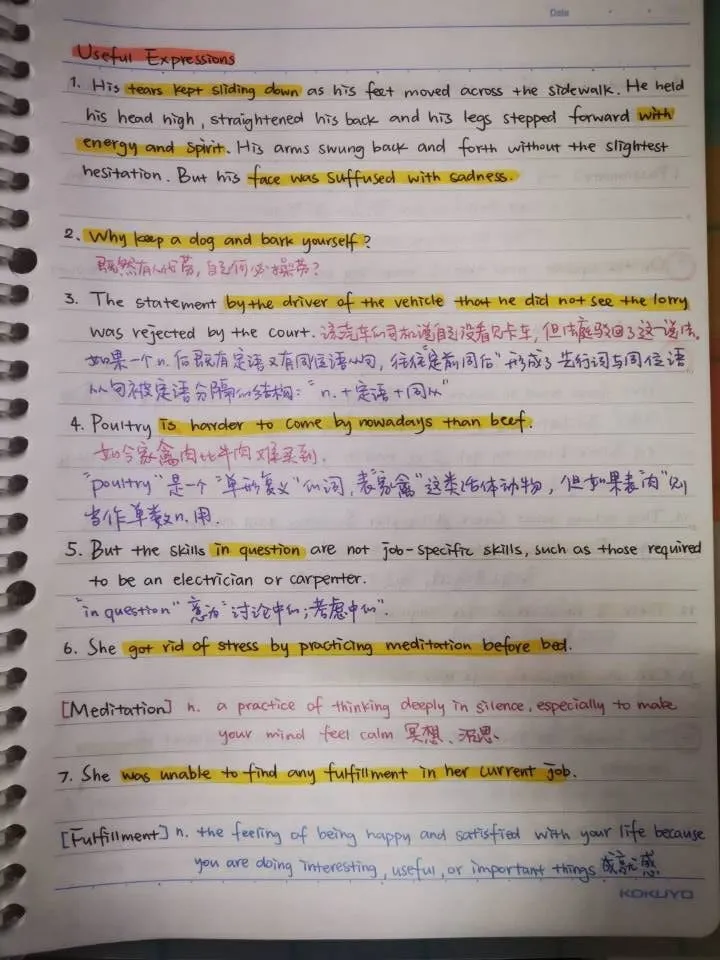 Date
Useful Expressions
1. His tears kept sliding down as his feet moved across the sidewalk. He held
his head high, straightened his back and his legs stepped forward with
energy and spirit. His arms swung back and forth without the slightest
hesitation. But his face was suffused with sadness.
2. Why keep a dog and bark yourself?
既然有人代劳,自己何必操劳?
3. The statement by the driver of the vehicle that he did not see the lorry
was rejected by the court. 该汽车的司机道自己没看见卡车,但法庭驳回了这一说法.
如果一个n.后既有定语又有同位语从句,往往"定前同后"形成了先行词与同位语
从句被定语分隔的结构:"n.+定语+同从"
4. Poultry is harder to come by nowadays than beef.
如今家禽肉比牛肉难买到.
"poultry"是一个"单形复义"的词,表"家禽"这类活体动物,但如果表"肉"则
当作单数n.用.
5. But the skills in question are not job-specific skills, such as those required
to be an electrician or carpenter.
"in question" 意为"讨论中的;考虑中的".
6. She got rid of stress by practicing meditation before bed.
[Meditation] n. a practice of thinking deeply in silence, especially to make
your mind feel calm 冥想、沉思.
7. She was unable to find any fulfillment in her current job.
[Fulfillment] n. the feeling of being happy and satisfied with your life because
you are doing interesting, useful, or important things 成就感
KOKUYO